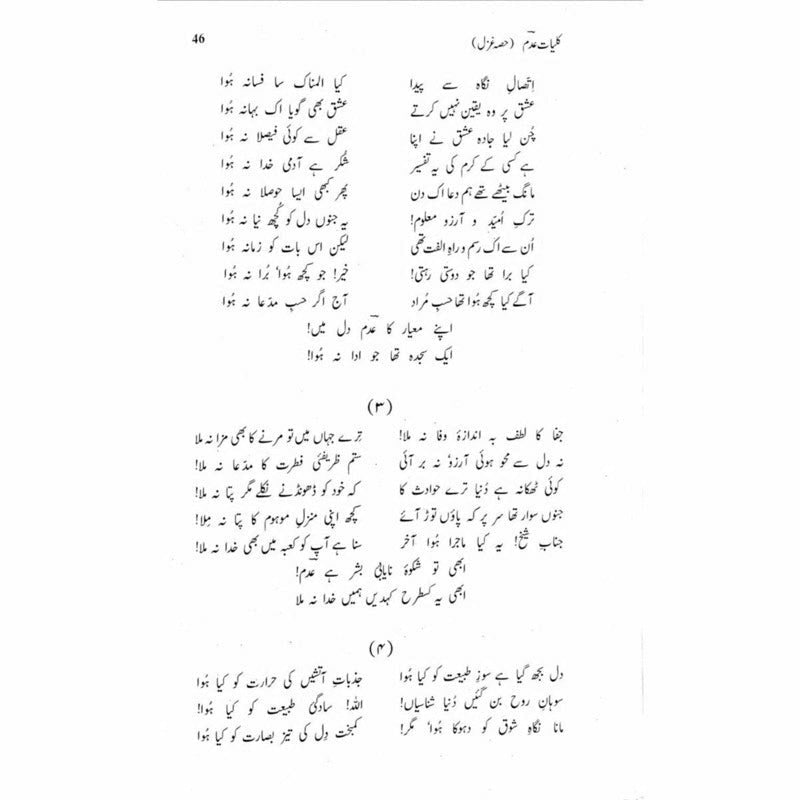 کلیات عدم (حصہ غزل) 46
اِتصالِ نگاہ سے پیدا کیا المناک سا فسانہ ہُوا
عشق پر وہ یقین نہیں کرتے عشق بھی گویا اک بہانہ ہُوا
چُن لیا جادہ عشق نے اپنا عقل سے کوئی فیصلا نہ ہُوا
ہے کسی کے کرم کی یہ تفسیر شُکر ہے آدمی خدا نہ ہُوا
مانگ بیٹھے تھے ہم دعا اک دن پھر کبھی ایسا حوصلا نہ ہُوا
ترکِ اُمیّد و آرزو معلوم! یہ جنوں دل کو کُچھ نیا نہ ہُوا
اُن سے اک رسم و راہِ الفت تھی لیکن اس بات کو زمانہ ہُوا
کیا برا تھا جو دوستی رہتی! خیر! جو کچھ ہُوا، بُرا نہ ہُوا
آگے کیا کچھ ہُوا تھا حسبِ مُراد آج اگر حسبِ مدّعا نہ ہُوا
اپنے معیار کا عدم دل میں!
ایک سجدہ تھا جو ادا نہ ہُوا!
(۳)
جفا کا لطف بہ اندازۂ وفا نہ ملا! تِرے جہاں میں تو مرنے کا بھی مزا نہ ملا
نہ دل سے محو ہوئی آرزو، نہ بر آئی ستم ظریفئی فطرت کا مدّعا نہ ملا!
کوئی ٹھکانہ ہے دُنیا ترے حوادث کا کہ خود کو ڈھونڈنے نکلے مگر پتا نہ ملا!
جنوں سوار تھا سر پر کہ پاؤں توڑ آئے کچھ اپنی منزلِ موہوم کا پتا نہ مِلا!
جنابِ شیخ! یہ کیا ماجرا ہُوا آخر سنا ہے آپ کو کعبہ میں بھی خدا نہ ملا!
ابھی تو شکوۂ نایابئ بشر ہے عدم!
ابھی یہ کسطرح کہدیں ہمیں خدا نہ ملا
(۴)
دل بجھ گیا ہے سوزِ طبیعت کو کیا ہُوا جذباتِ آتشیں کی حرارت کو کیا ہُوا
سوہانِ روح بن گئیں دُنیا شناسیاں! اللہ! سادگئ طبیعت کو کیا ہُوا!
مانا نگاہِ شوق کو دہوکا ہُوا، مگر! کمبخت دِل کی تیز بصارت کو کیا ہُوا